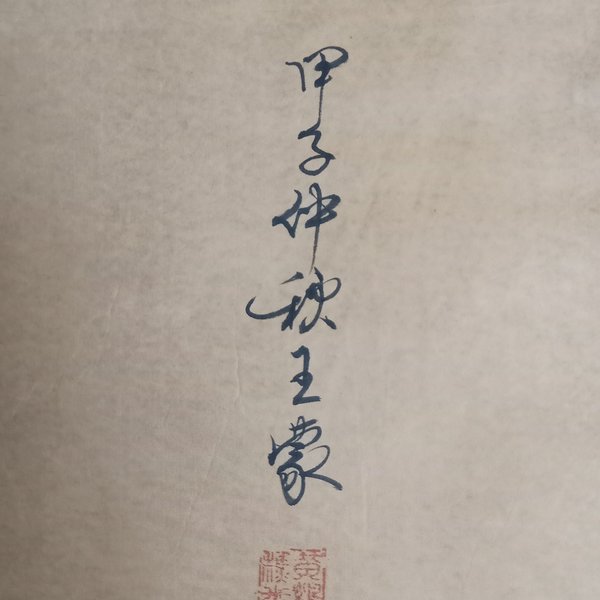 甲子仲秋王蒙